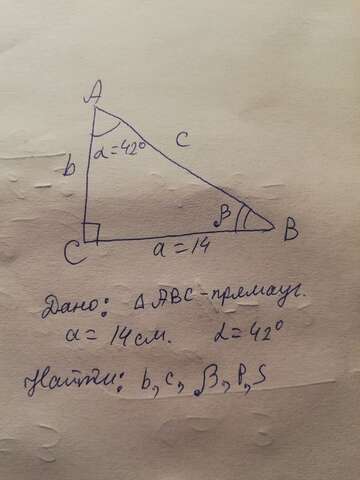 A
α=42°
c
b
β
C
a=14
B
Дано: ΔABC-прямоуг.
a= 14см. α=42°
Найти: b, c, β, P, S